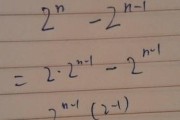 2ⁿ - 2ⁿ⁻¹
= 2·2ⁿ⁻¹ - 2ⁿ⁻¹
2ⁿ⁻¹ (2-1)